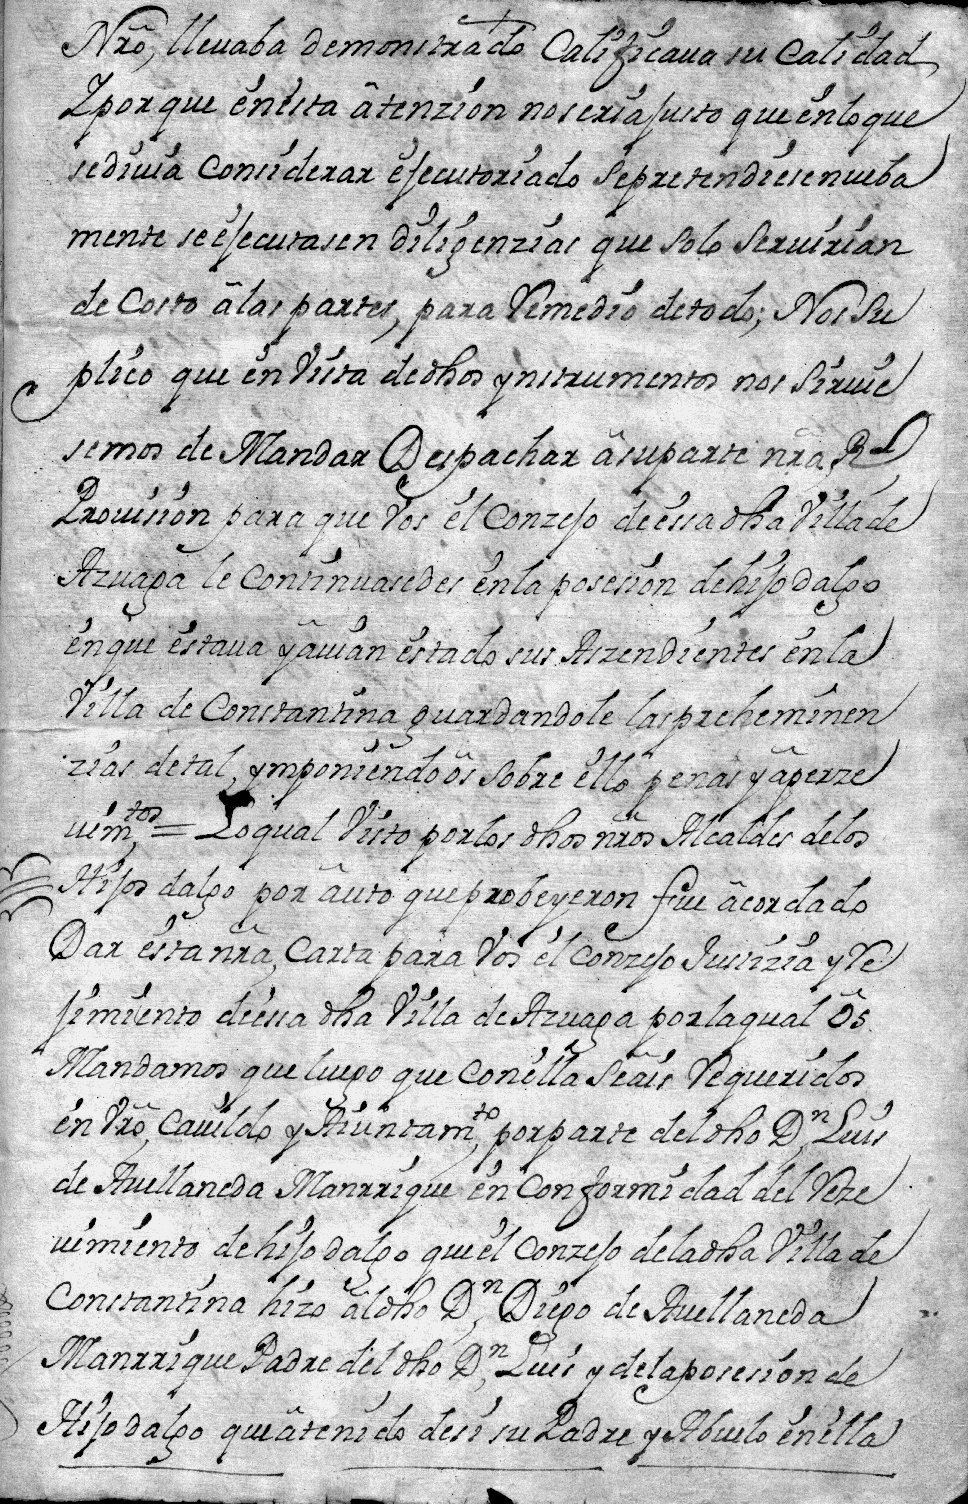 Nrõ, llevaba demonstrado Calificaua su Calidad
Y por que en esta atenzion no seria justo que en lo que
se diuia Considerar ejecutoriado se pretendiese nueba
mente se ejecutasen diligenzias que solo seruirian
de Costo â las partes, para Remedio de todo; Nos Su
plico que en Vista de dhos ynstrumentos nos siruie
semos de Mandar Despachar â su parte nrã, Rl
Prouision para que Vos el Conzejo de essa dha Villa de
Azuaga le Continuasedes en la posesion de hijo dalgo
en que estaua y auian estado sus Aszendientes en la
Villa de Constantina guardandole las preheminen
zias de tal, ymponiendoôs sobre ello penas y âperze
uimtos, = Lo qual Visto por los dhos nrõs Alcaldes de los
Hijos dalgo por âuto que probeyeron fue âcordado
Dar esta nrã, Carta para Vos el Conzejo Justizia y Re
jimiento de essa dha Villa de Azuaga por la qual Ôs
Mandamos que luego que Con ella seais Requeridos
en Vrõ, Cauildo y Aiuntamto, por parte del dho Dn, Luis
de Auellaneda Manrrique en Conformidad del Reze
uimiento de hijo dalgo que el Conzejo de la dha Villa de
Constantina hizo âl dho Dn, Diego de Auellaneda
Manrrique Padre del dho Dn, Luis y de la posesion de
Hijo dalgo que â tenido desi su Padre y Abuelo en ella